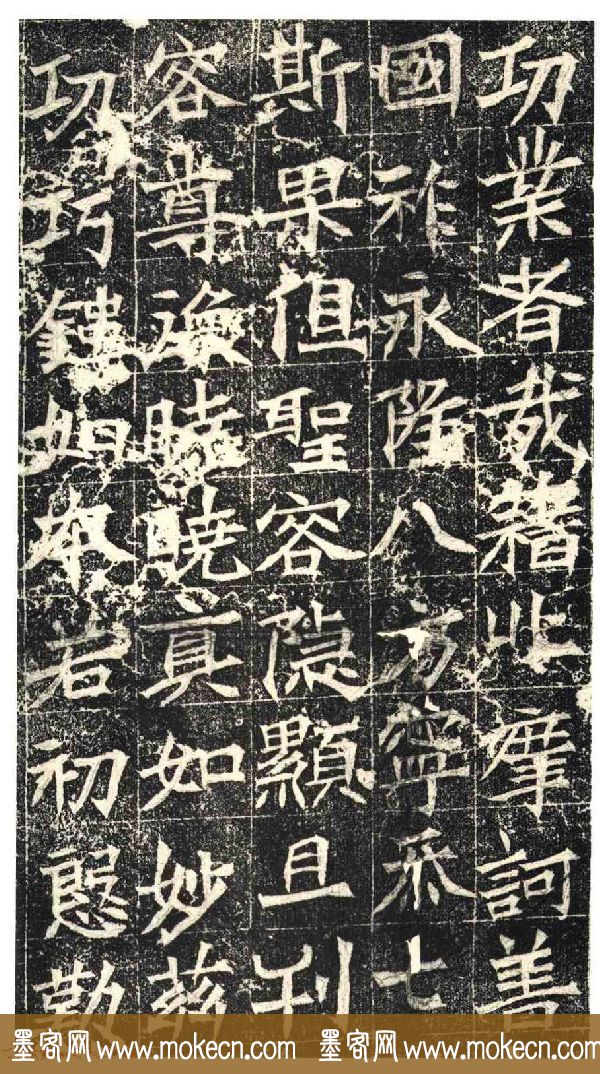 功業者哉藉此摩訶善
國祚永隆八方寧泰七
斯果但聖容隱顯且利
容尊曉真如妙
功巧鏤如本若初慇
墨客网 www.mokecn.com 墨客网 www.mokecn.com